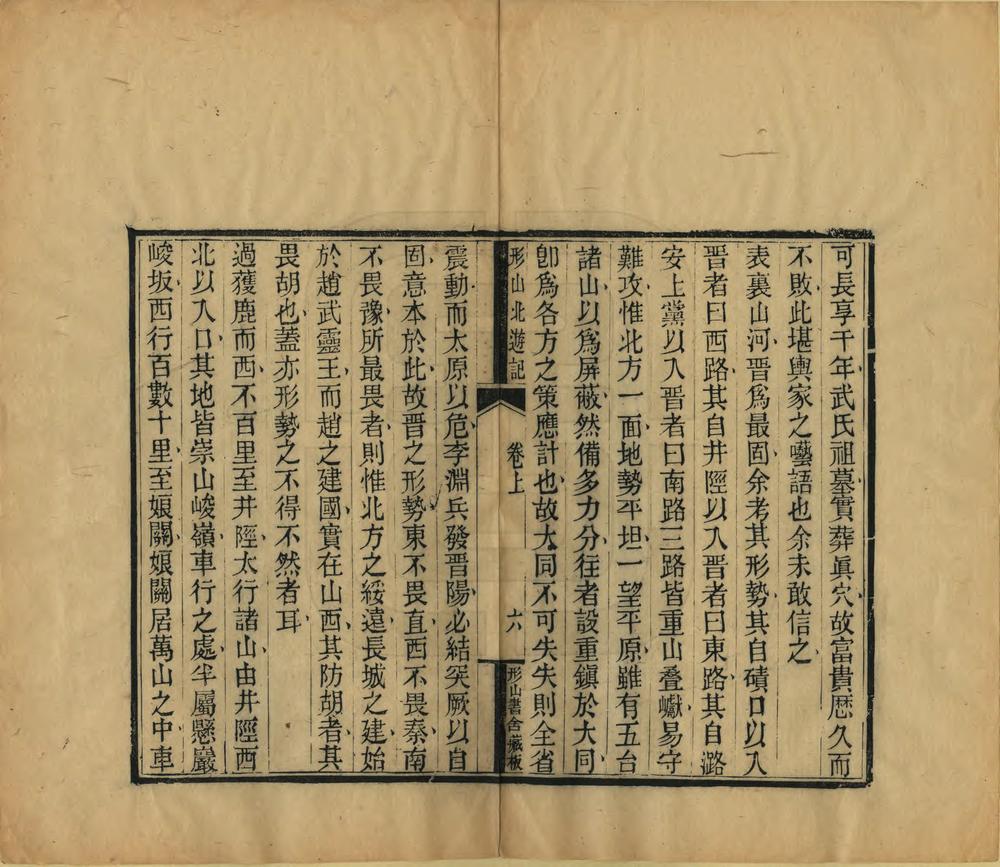 可長享千年武氏祖墓實葬眞穴故富貴歷久而
不敗此堪輿家之囈語也余未敢信之
表裏山河晉爲最固余考其形勢其自磧口以入
晉者曰西路其自井陘以入晉者曰東路其自潞
安上黨以入晉者曰南路三路皆重山叠巘易守
難攻惟北方一面地勢平坦一望平原雖有五台
諸山以爲屏蔽然備多力分往者設重鎭於大同
卽爲各方之策應計也故大同不可失失則全省
形山北遊記 卷上 六 形山書舍藏板
震動而太原以危李淵兵發晉陽必結突厥以自
固意本於此故晉之形勢東不畏直西不畏秦南
不畏豫所最畏者則惟北方之綏遠長城之建始
於趙武靈王而趙之建國實在山西其防胡者其
畏胡也蓋亦形勢之不得不然者耳
過獲鹿而西不百里至井陘太行諸山由井陘西
北以入口其地皆崇山峻嶺車行之處半屬懸巖
峻坂西行百數十里至娘關娘關居萬山之中車